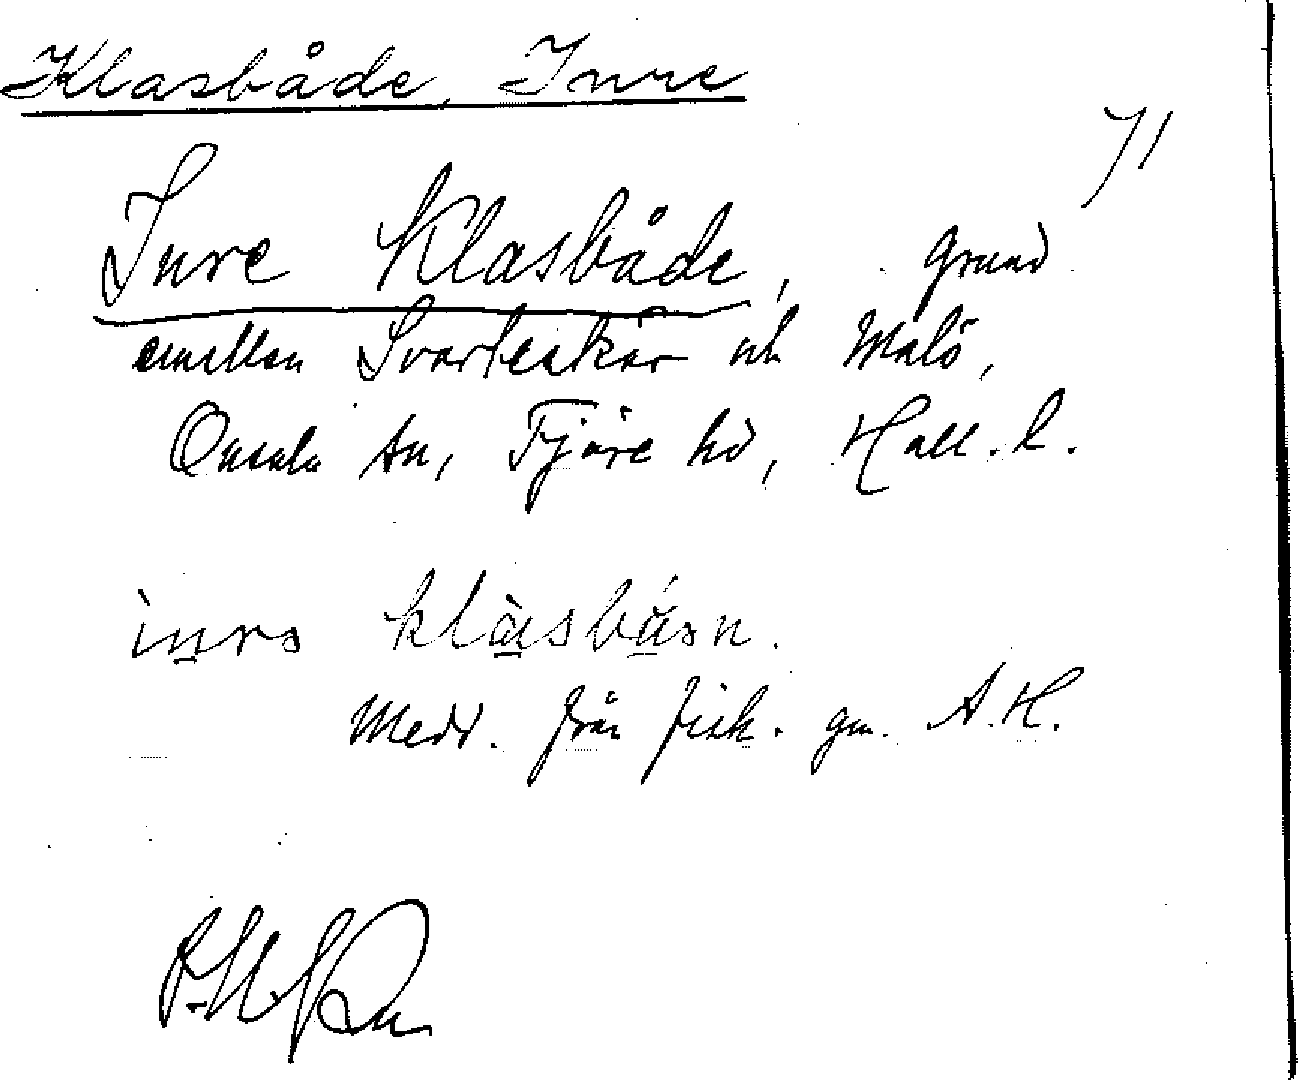 Klasbåde, Inre
71
Inre Klasbåde, grund
emellan Svarteskär och Malö,
Onsala sn, Fjäre hd, Hall. l.
inrə klàsbåən.
Medd. från fisk. gm. A.H.